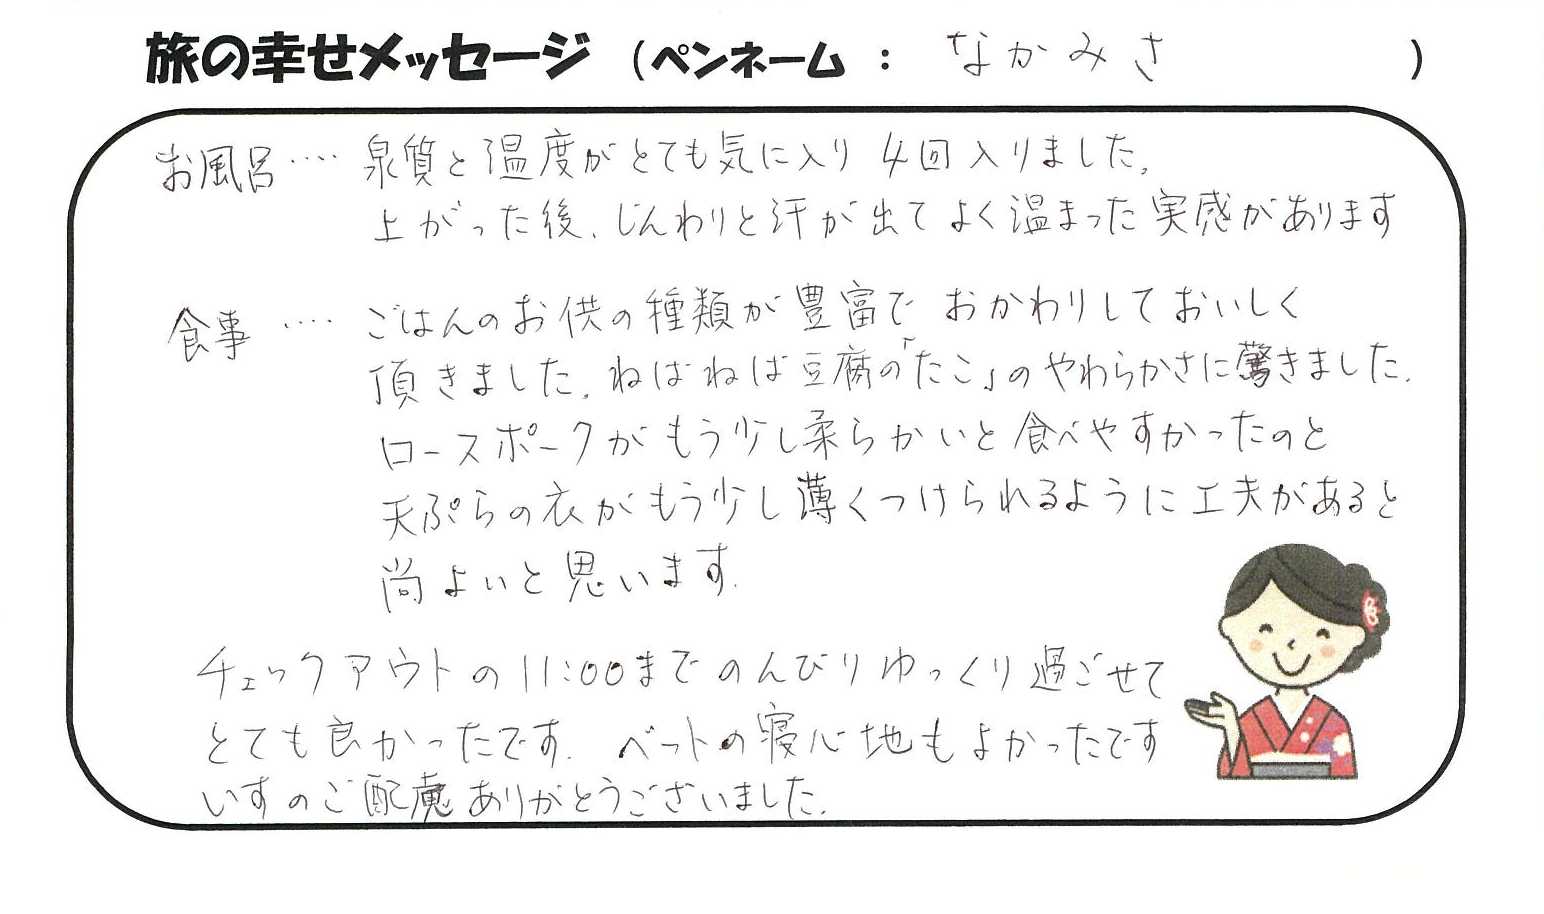 旅の幸せメッセージ (ペンネーム : なかみさ )
お風呂‥‥ 泉質と温度がとても気に入り 4回入りました。
上がった後、じんわりと汗が出てよく温まった実感があります
食事‥‥ ごはんのお供の種類が豊富で おかわりしておいしく
頂きました。ねばねば豆腐の「たこ」のやわらかさに驚きました。
ロースポークがもう少し柔らかいと食べやすかったのと
天ぷらの衣がもう少し薄くつけられるように工夫があると
尚よいと思います。
チェックアウトの11:00までのんびりゆっくり過ごせて
とても良かったです。ベットの寝心地もよかったです
いすのご配慮ありがとうございました。